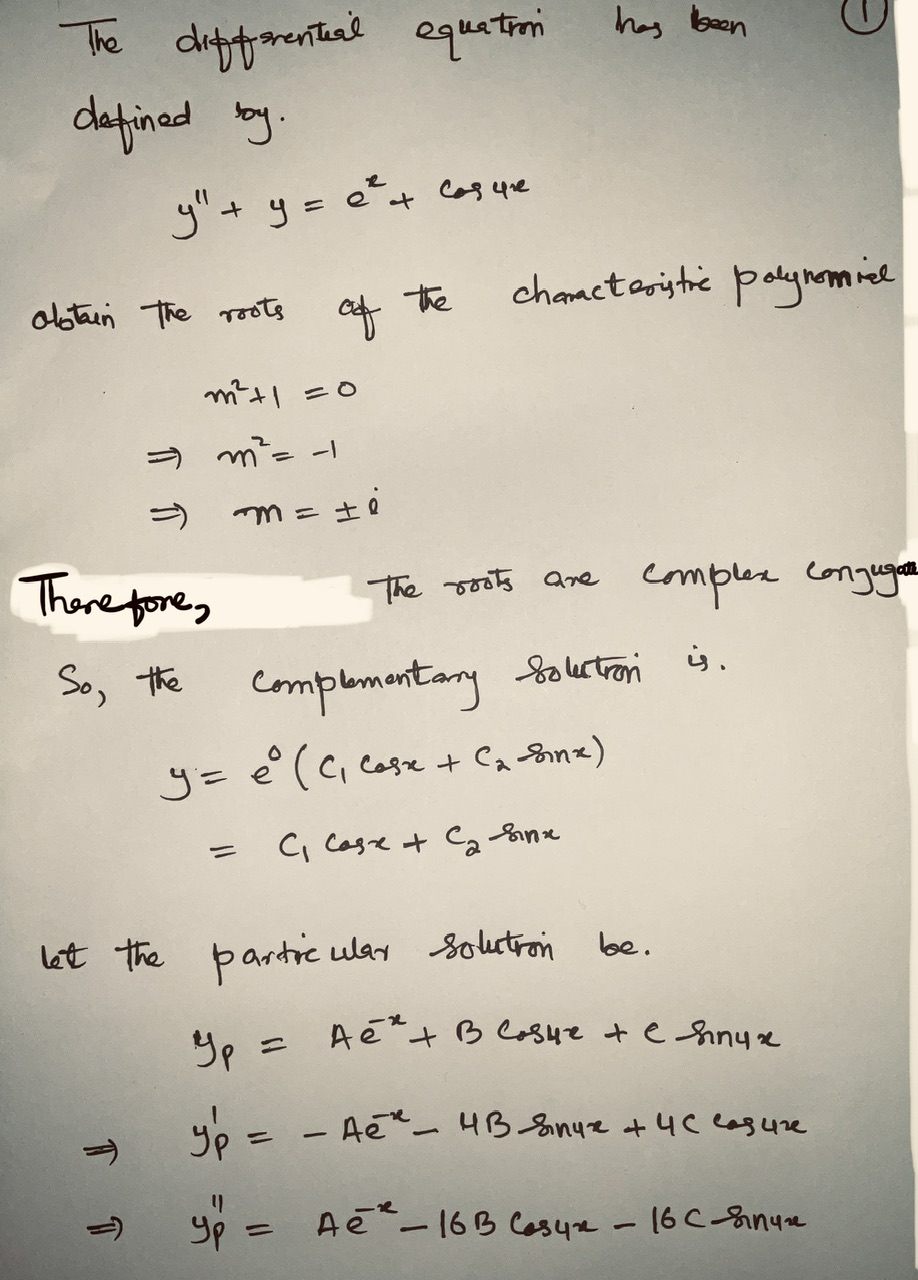 The differential equation has been ①
defined by.
y'' + y = e^x + cos 4x
obtain the roots of the characteristic polynomial
m² + 1 = 0
⇒ m² = -1
⇒ m = ± i
Therefore, the roots are complex conjugate
So, the complementary solution is.
y = e⁰ (C₁ cosx + C₂ sinx)
= C₁ cosx + C₂ sinx
let the particular solution be.
y_p = A e^-x + B cos4x + C sin4x
⇒ y'_p = - A e^-x - 4B sin4x + 4C cos4x
⇒ y''_p = A e^-x - 16B cos4x - 16C sin4x